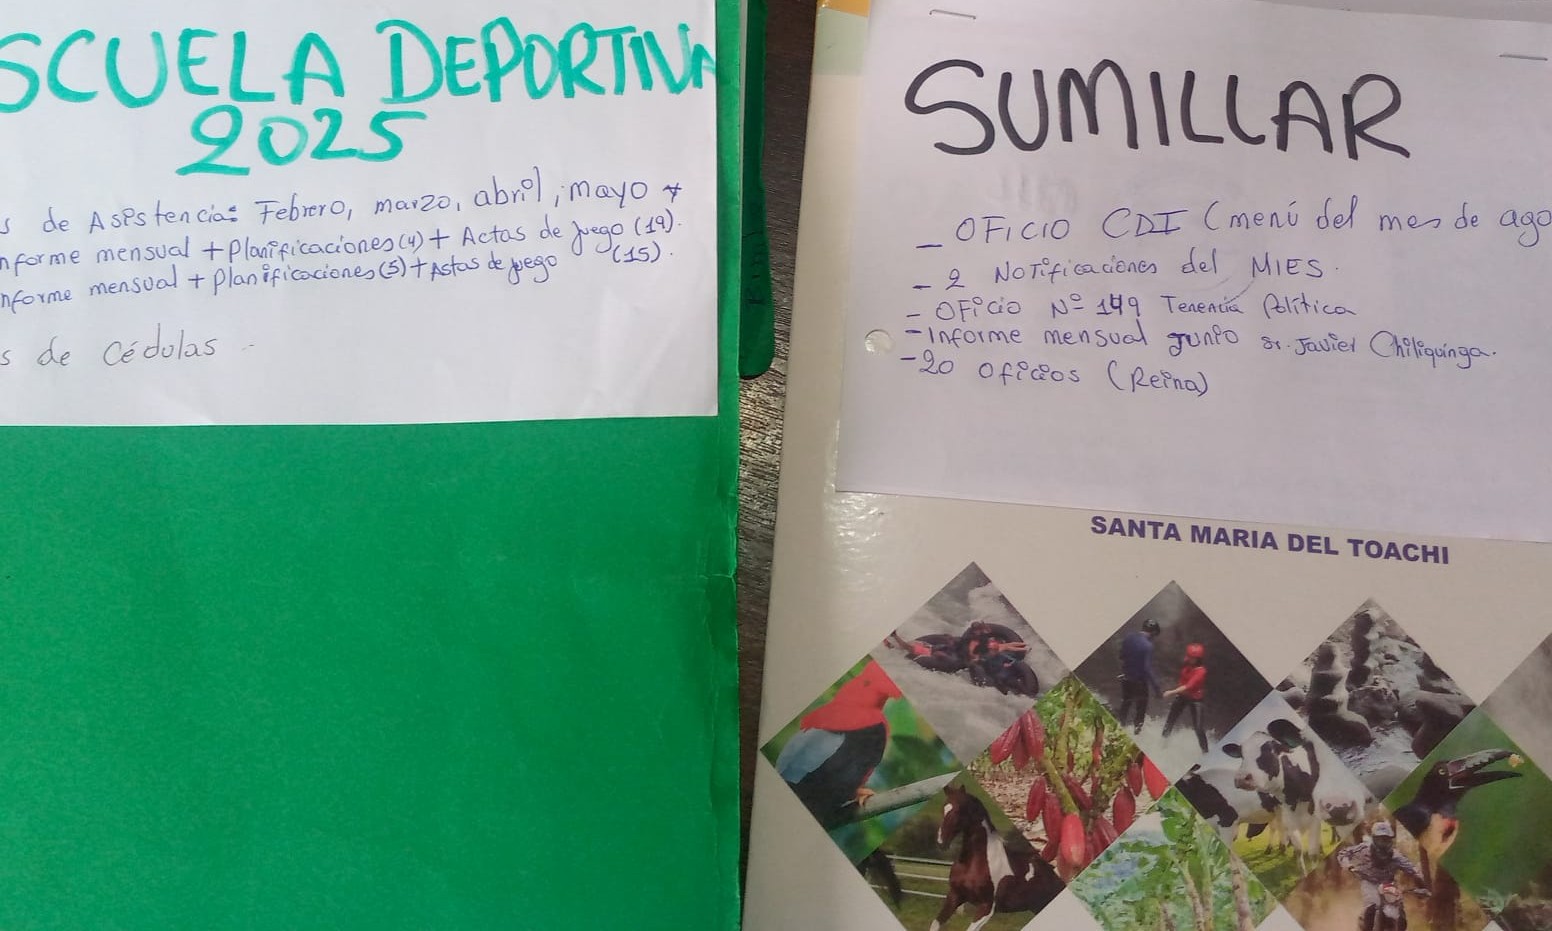 SCUELA DEPORTIVA
2025
s de Asistencia: Febrero, marzo, abril, mayo y
nforme mensual + Planificaciones (4) + Actas de juego (19).
nforme mensual + planificaciones (5) + Actas de juego (15).
s de Cédulas
SUMILLAR
- OFICIO CDI (menú del mes de ago
- 2 Notificaciones del MIES.
- OFicio Nº 149 Tenencia Política
- Informe mensual Junio sr. Javier Chiliquinga.
- 20 oficios (Reina)
SANTA MARIA DEL TOACHI